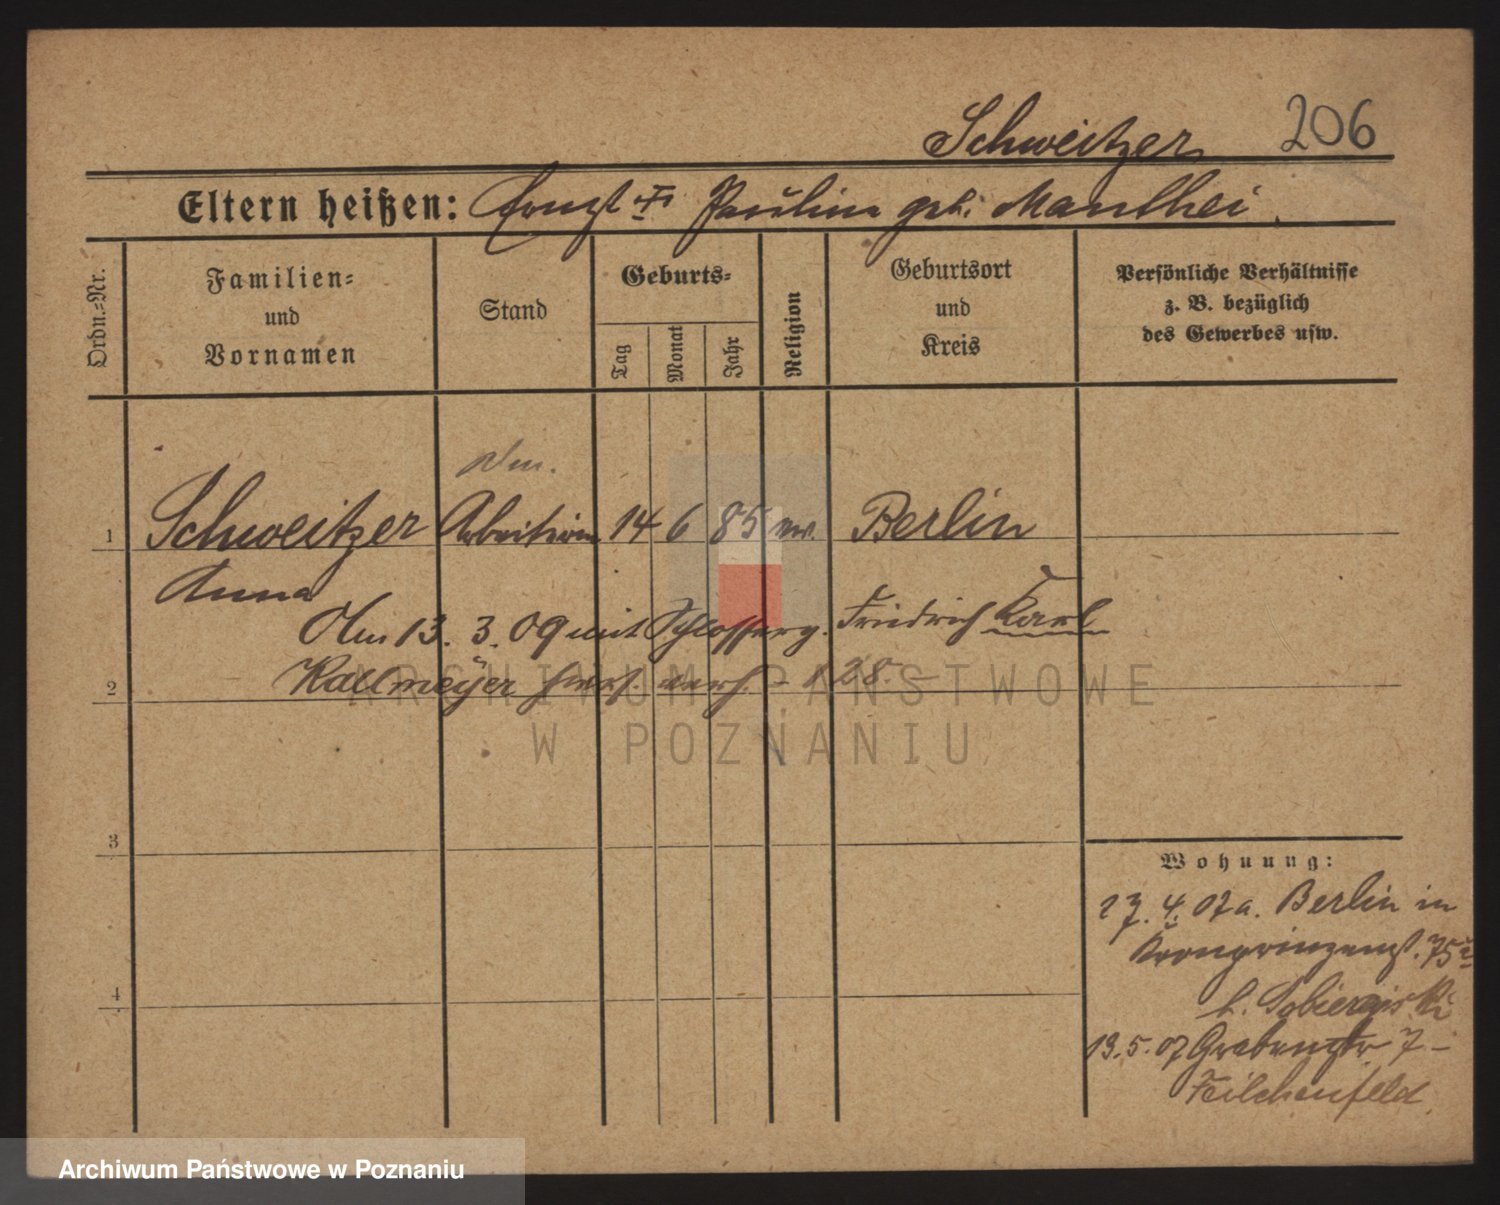 Schweitzer 206
Eltern heißen: Ernst u. Pauline geb. Manthei.
Ordn.-Nr.
Familien-
und
Vornamen
Stand
Geburts-
Tag
Monat
Jahr
Religion
Geburtsort
und
Kreis
Persönliche Verhältnisse
z. B. bezüglich
des Gewerbes usw.
1 Schweitzer Arbeiterin 14 6 85 ev. Berlin
Anna
Am 13. 3. 09 mit Schlosserg. Friedrich Karl
2 Kallmeyer hier verh. 128.
3
4
Wohnung:
27. 4. 07 a. Berlin in
Kronprinzenst. 75
b. Sobierajski
13. 5. 07 Grabenstr 7 –
Feilchenfeld.
ARCHIWUM PAŃSTWOWE
W POZNANIU
Archiwum Państwowe w Poznaniu